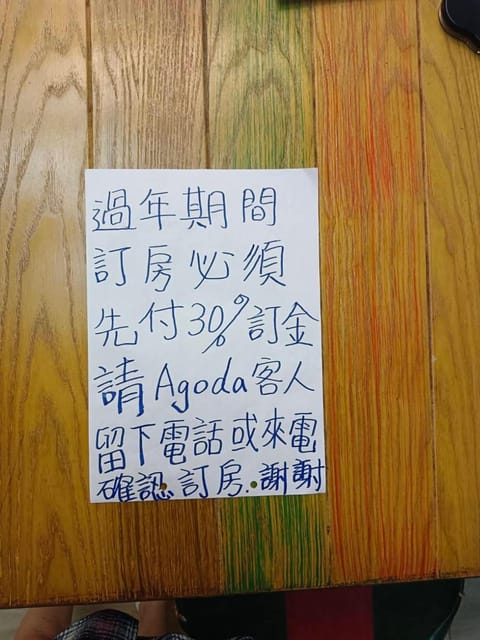 過年期間
訂房必須
先付30%訂金
請Agoda客人
留下電話或來電
確認訂房.謝謝